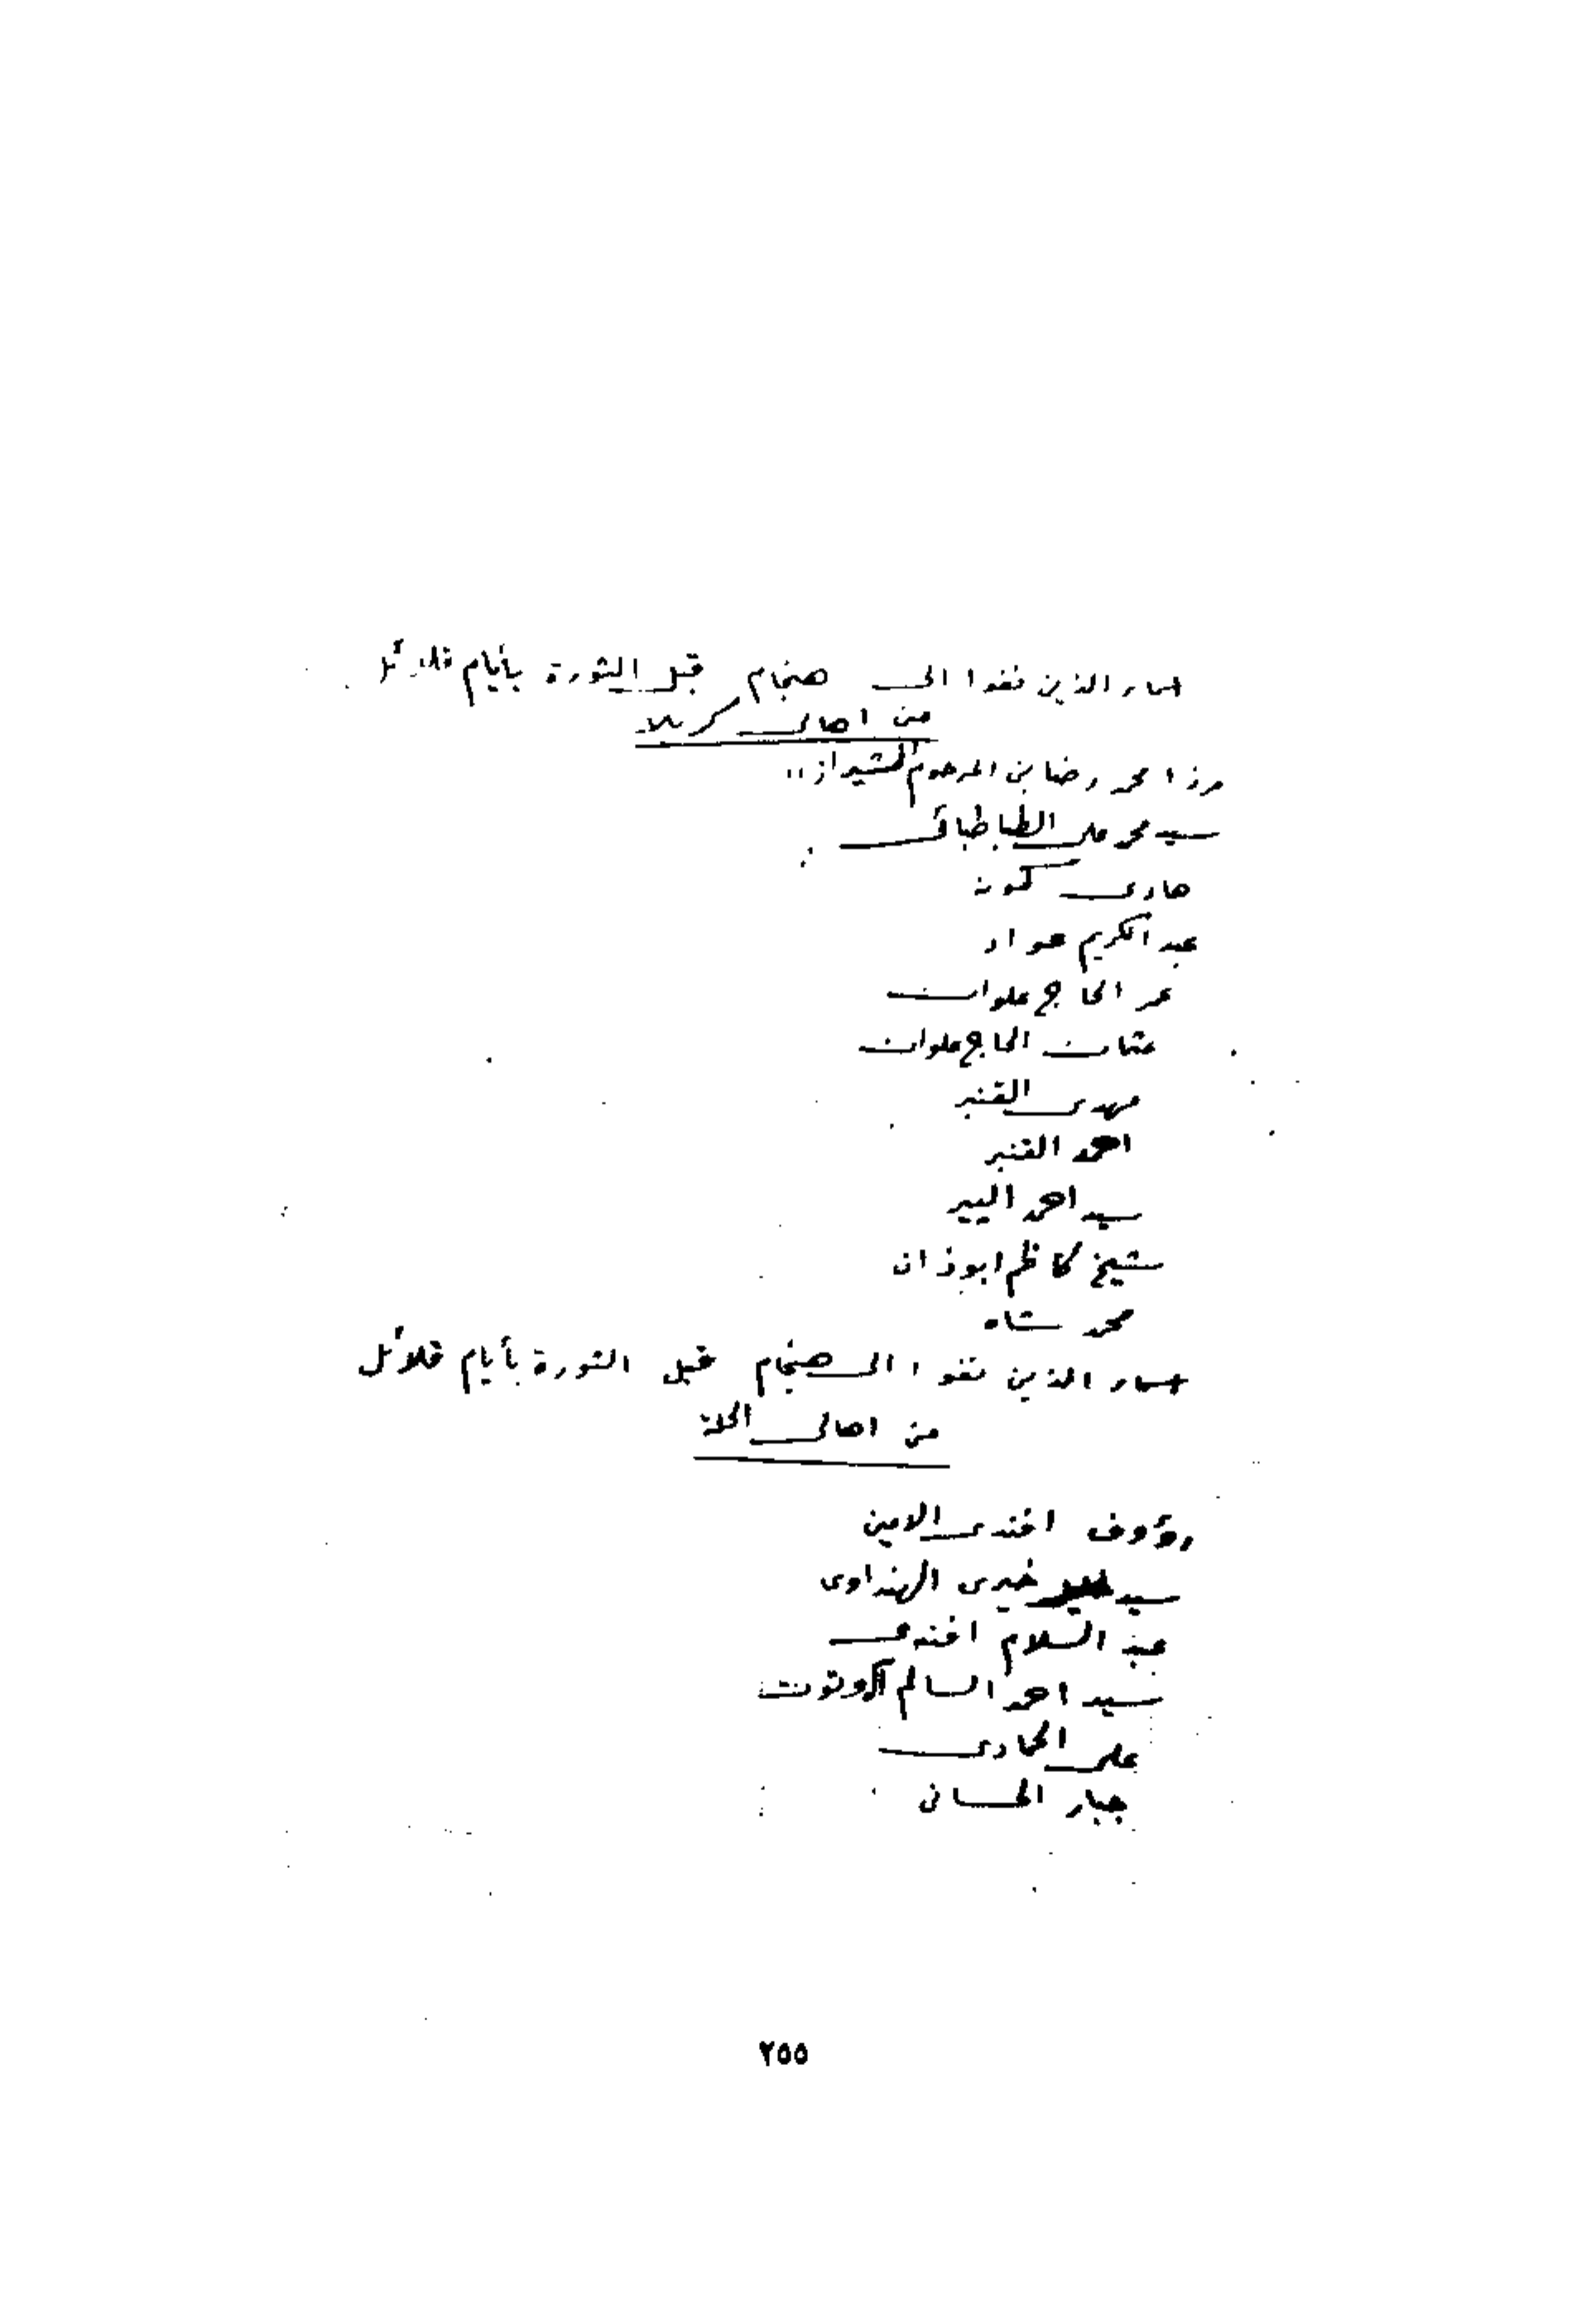 اسماء الذين نفوا الى هنجام قبل الثورة بأيام قلائل
من اهالى كربلاء
مرزا محمد رضا بن المرحوم الشيرازي
سيد محمد على الطباطبائى
هادى كمونه
عبد الكريم عواد
عمر الحاج علوان
عثمان الحاج علوان
مهدى القنبر
احمد القنبر
سيد احمد البير
شيخ كاظم ابو ذان
محمد شاه
اسماء الذين نفوا الى هنجام قبل الثورة بأيام قلائل
من اهالى الحلة
رؤوف افندى الامين
سيد خيرى الهنداوى
عبد السلام افندى
سيد احمد السالم
على الحمادى
جبار الحسانى
٢٥٥